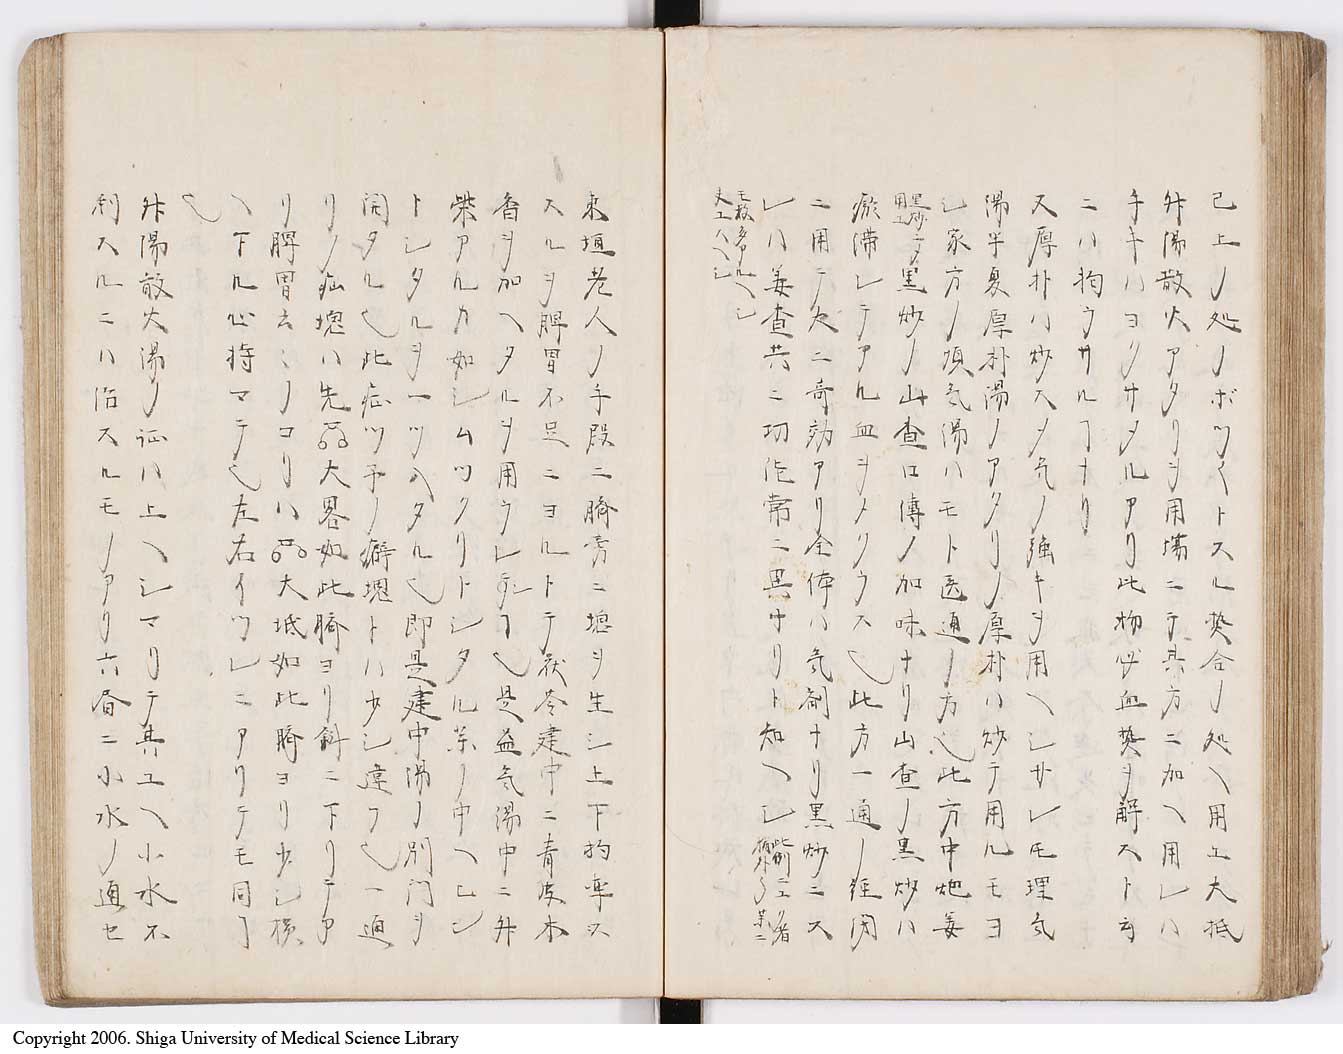 已上ノ処ノボツ〱トスル熱合ノ処ヘ用エ大抵
升陽散火アタリヲ用場ニテ其方ニ加ヘ用レハ
手キハヨリサタルアリ此物必血熱ヲ解スト云
ニハ拘ラサルヿナリ
又厚朴ハ炒スメ気ノ強キヲ用ヘシサレモ理気
湯半夏厚朴湯ノアタリノ厚朴ハ炒テ用ルモヨ
シ家方ノ順気湯ハモト医通ノ方也此方中炮姜
黒炒ニメ用エ黒炒ノ山查口傳ノ加味ナリ山查ノ黒炒ハ
瘀滞シテアル血ヲメクラス也此方一通ノ経閉
ニ用テ大ニ奇効アリ全体ハ気剤ナリ黒炒ニス
レハ姜查共ニ功能常ニ異ナリト知ヘシ此例
モ数多アルヘシ
考エヘシ
東垣老人ノ手段ニ臍旁ニ塊ヲ生シ上下拘牽ス
スルヲ脾胃不足ニヨルトテ茯苓建中ニ青皮木
香ヲ加ヘタルヲ用ラレ也是益気湯中ニ升
柴アルカ如シムツクリトシタル薬ノ中ヘヒン
トシタルヲ一ツ入タル也即是建中湯ノ別門ヲ
開タル也此症ツ予ノ癖塊トハ少シ違フ也一通
リノ疝塊ハ先大畧如此臍ヨリ斜ニ下リテア
リ脾胃云〻ノコリハ大抵如此臍ヨリ少シ横
ヘ下ル心持マテ也左右イツレニアリテモ同ヿ
也
升陽散火湯ノ証ハ上ヘシマリテ其上ヘ小水不
利スルニハ治スルモノアリ六昏ニ小水ノ通セ